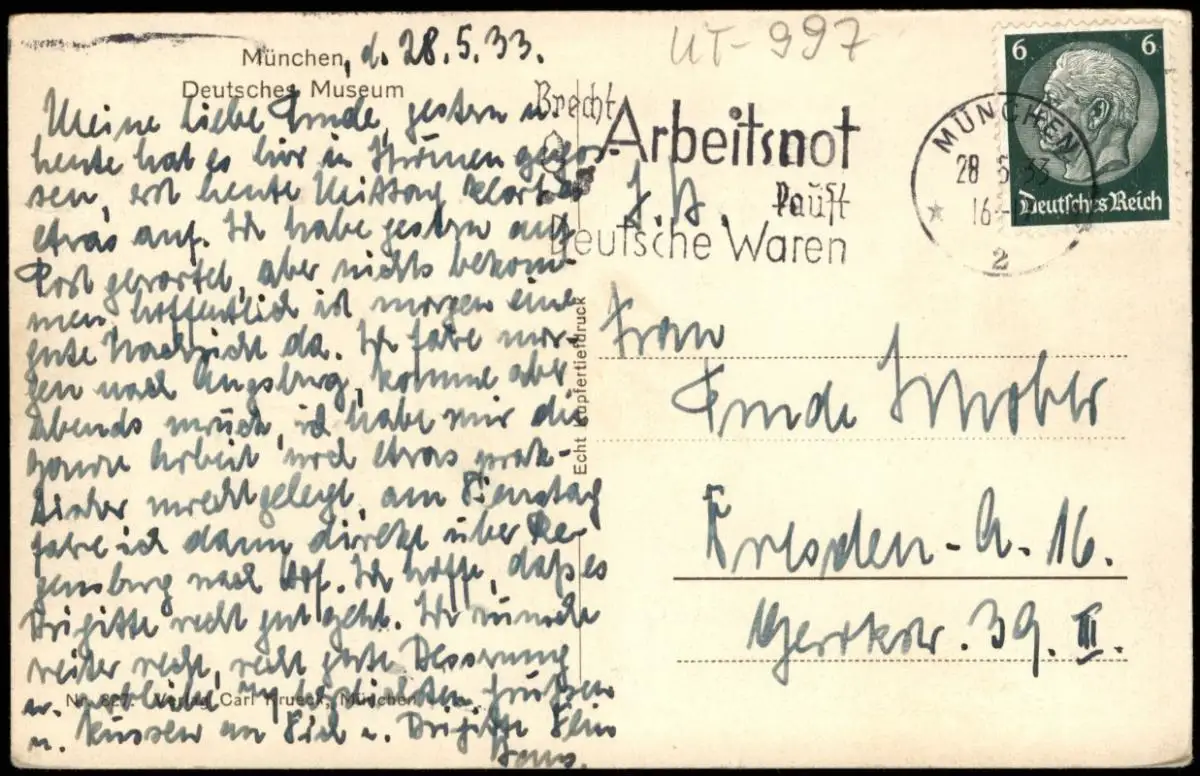 München, d. 28.5.33.
Deutsches Museum
Meine liebe Trude, gestern u.
heute hat es hier in Strömen gegos-
sen, erst heute Mittag klart es
etwas auf. Ich habe gestern auf
Post gewartet, aber nichts bekom-
men hoffentlich ist morgen eine
gute Nachricht da. Ich fahre mor-
gen nach Augsburg, komme aber
Abends zurück, ich habe mir die
ganze Arbeit noch etwas prak-
tischer zurechtgelegt, am Dienstag
fahre ich dann direkt über Re-
gensburg nach
Ich hoffe, daß es
Brigitte recht gut geht. Ich wünsche
weiter recht, recht gute Besserung
u. verbleibe mit herzlichsten Grüßen
u. Küssen an Dich u. Brigitte Dein
Hans.
Nr. 827. Verlag Carl Krueck, München
Echt Kupfertiefdruck
UT-997
Brecht
Arbeitsnot
kauft
Deutsche Waren
MÜNCHEN
28 5 33
16-
2
6 6
Deutsches Reich
Frau
Trude
Dresden-A-16.
39. III.